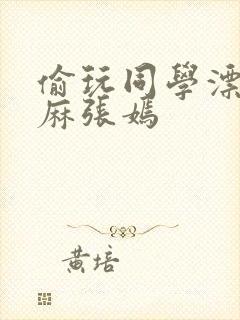 偷玩同學漂
麻張嫣
黃培